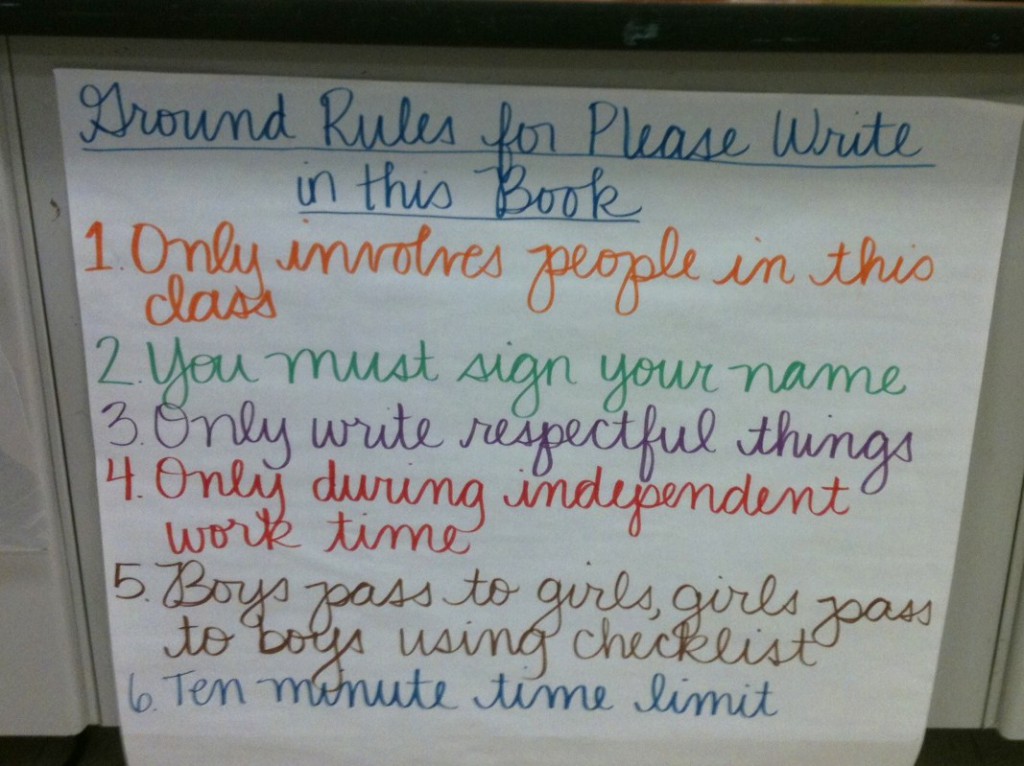 Ground Rules for Please Write
in this Book
1. Only involves people in this
class
2. You must sign your name
3. Only write respectful things
4. Only during independent
work time
5. Boys pass to girls, girls pass
to boys using checklist
6. Ten minute time limit